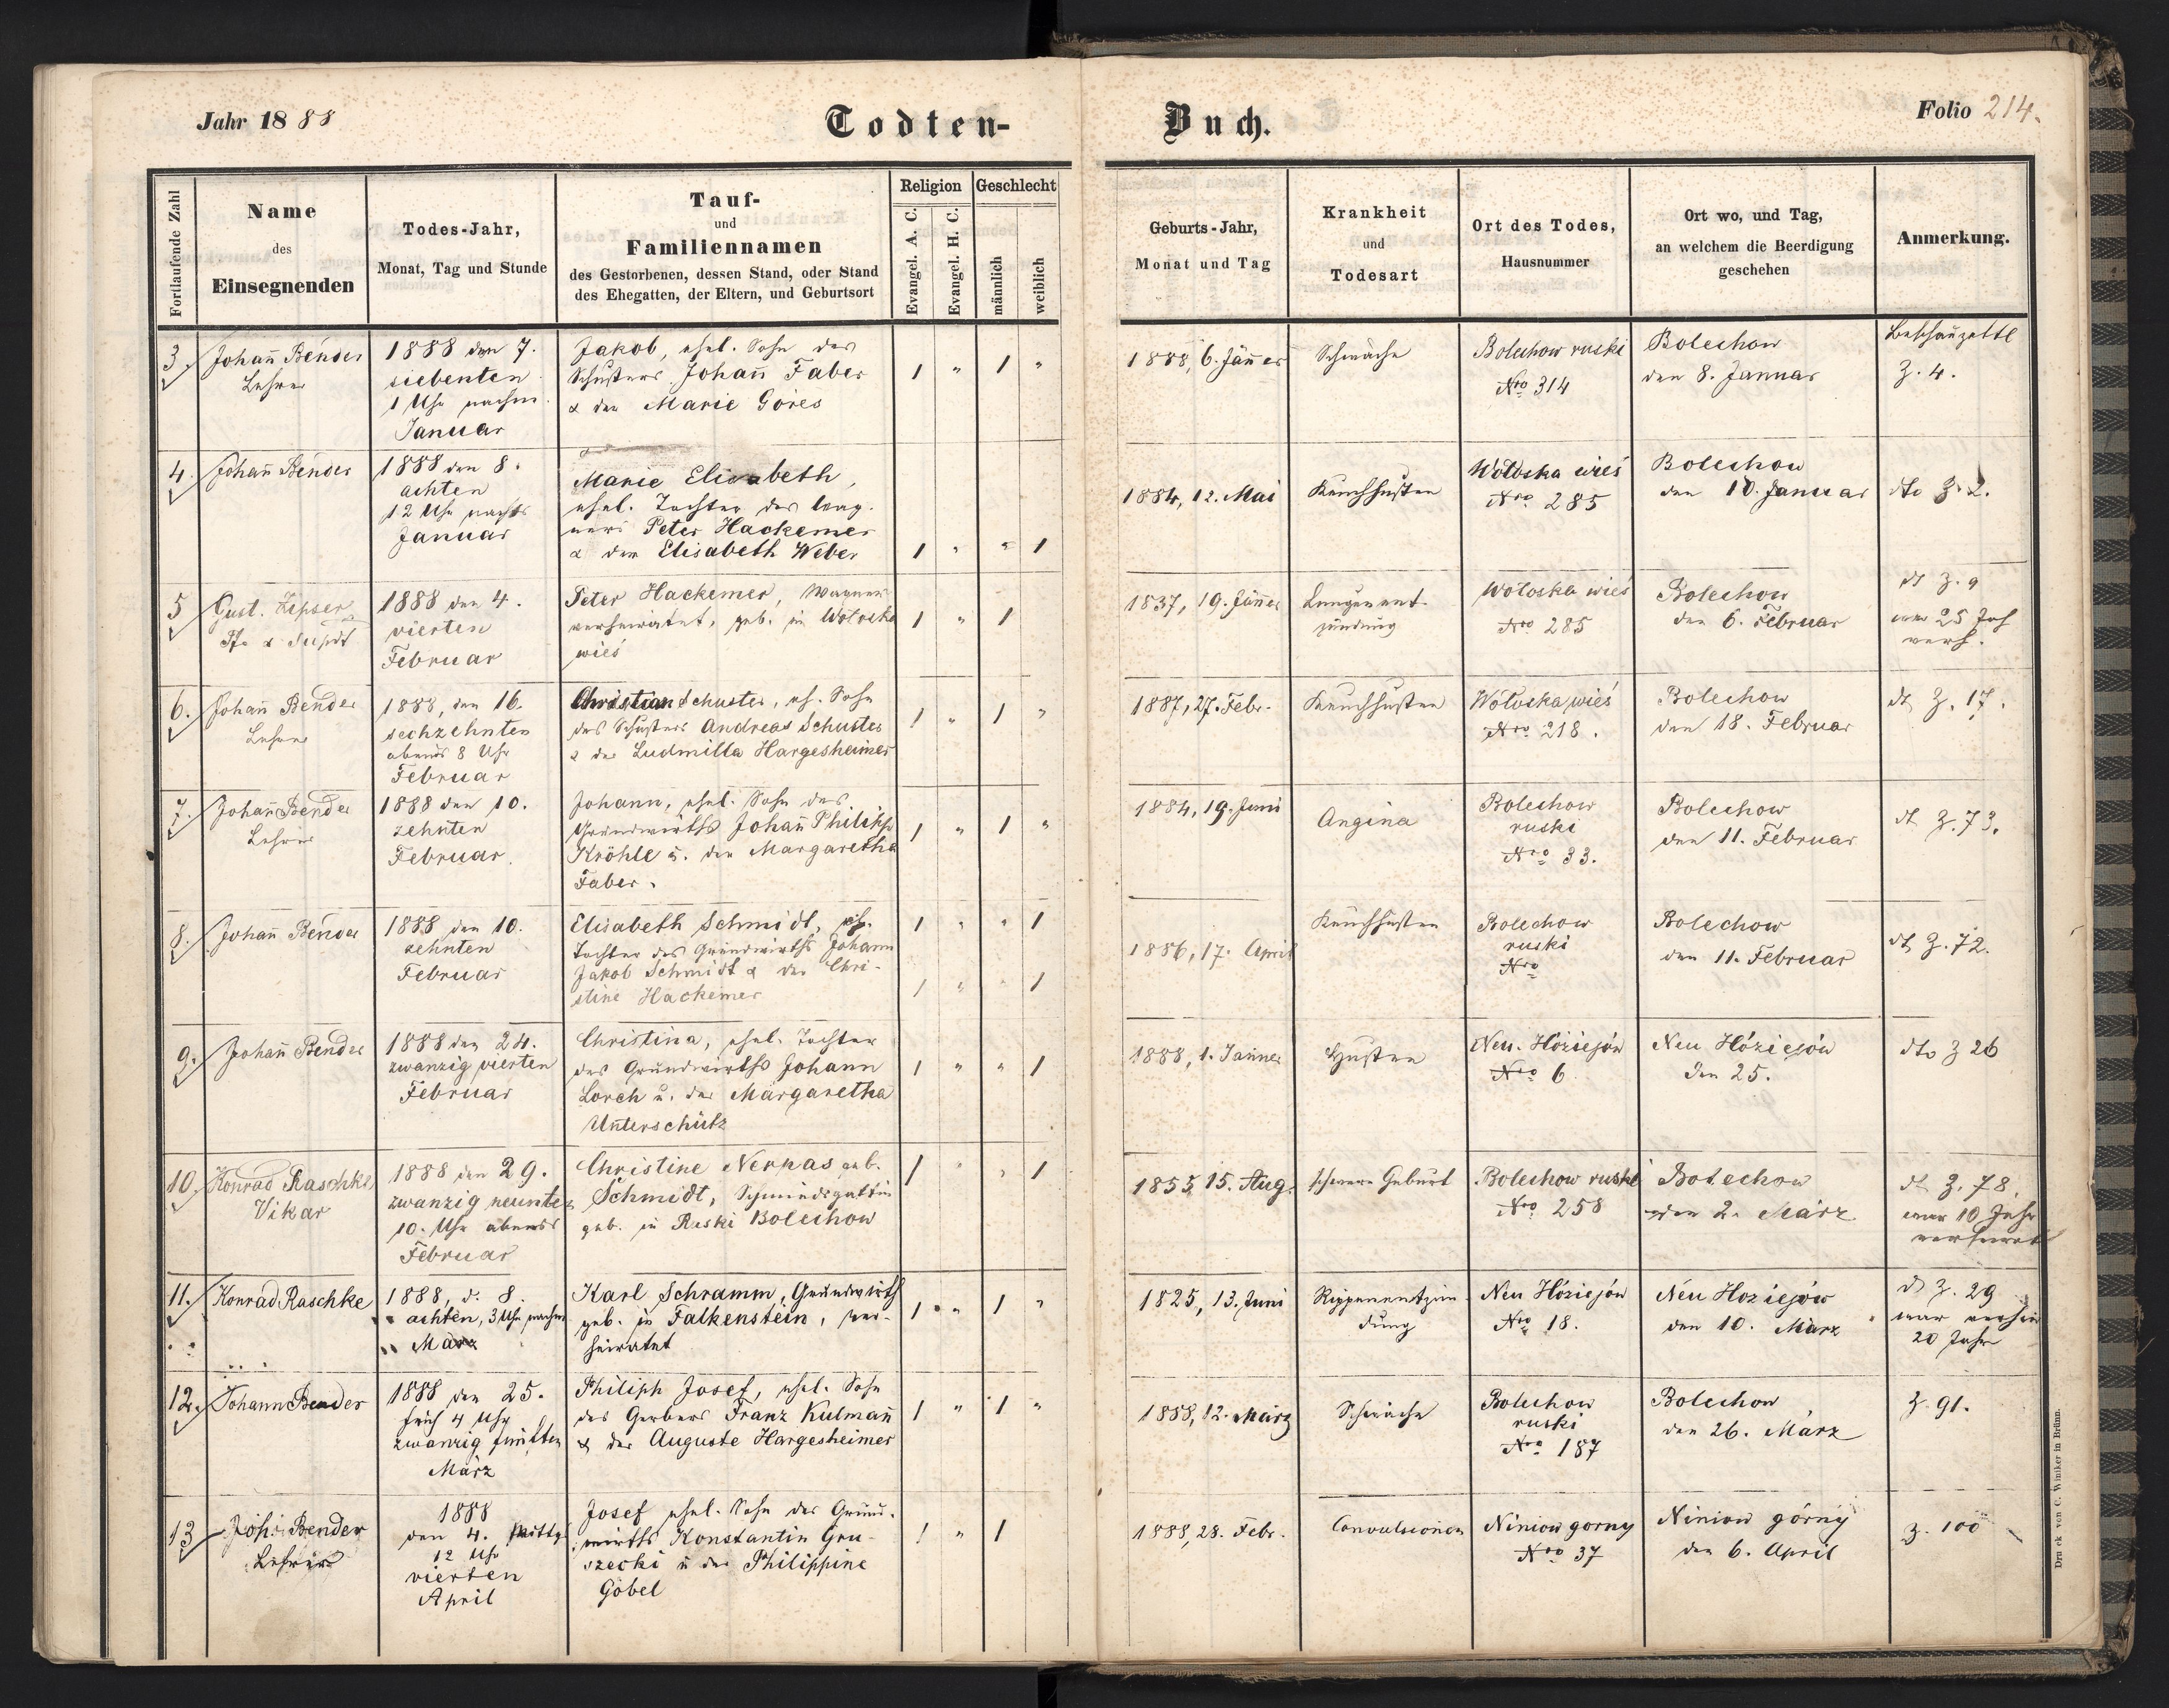 Jahr 1888
Todten-
Buch.
Folio 214.
Fortlaufende Zahl
Name
des
Einsegnenden
Todes-Jahr,
Monat, Tag und Stunde
Tauf-
und
Familiennamen
des Gestorbenen, dessen Stand, oder Stand
des Ehegatten, der Eltern, und Geburtsort
Religion
Evangel. A. C.
Evangel. H. C.
Geschlecht
männlich
weiblich
Geburts-Jahr,
Monat und Tag
Krankheit
und
Todesart
Ort des Todes,
Hausnummer
Ort wo, und Tag,
an welchem die Beerdigung
geschehen
Anmerkung.
3.
Johañ Bender
Lehrer
1888 den 7.
siebenten
1 Uhr nachm.
Januar
Jakob, ehel. Sohn des
Schusters Johañ Faber
& der Marie Gores
1 " 1 "
1888, 6. Jäñer
Schwäche
Bolechow ruski
Nro 314
Bolechow
den 8. Januar
Beschauzettl
Z. 4.
4.
Johañ Bender
1888 den 8.
achten
12 Uhr nachts
Januar
Marie Elisabeth,
ehel. Tochter des Wag-
ners Peter Hackemer
& der Elisabeth Weber
1 " " 1
1884, 12. Mai
Keuchhusten
Wołoska wieś
Nro 285
Bolechow
den 10. Januar
dto Z. 2.
5
Gust. Zipser
Pfr & Supdt
1888 den 4.
vierten
Februar
Peter Hackemer, Wagner
verheiratet, geb. in Wołoska
wieś
1 " 1
1837, 19. Jäñer
Lungenent-
zündung
Wołoska wieś
Nro 285
Bolechow
den 6. Februar
dt Z. 9
war 25 Jah
verh.
6.
Johañ Bender
Lehrer
1888, den 16.
sechzehnten
abends 8 Uhr
Februar
Christian Schuster, eh. Sohn
des Schusters Andreas Schuster
& der Ludmilla Hargesheimer
1 " 1 "
1887, 27. Febr.
Keuchhusten
Wołoska wieś
Nro 218.
Bolechow
den 18. Februar
dt Z. 17.
7.
Johañ Bender
Lehrer
1888 den 10.
zehnten
Februar.
Johann, ehel. Sohn des
Grundwirths Johañ Philipp
Kröhle u. der Margaretha
Faber.
1 " 1 "
1884, 19. Juni
Angina
Bolechow
ruski
Nro 33.
Bolechow
den 11. Februar
dt Z. 73.
8.
Johañ Bender
1888 den 10.
zehnten
Februar
Elisabeth Schmidt, eh.
Tochter des Grundwirths Johann
Jakob Schmidt & der Chri-
stine Hackemer
1 " " 1
1 " " 1
1886, 17. April
Keuchhusten
Bolechow
ruski
Nro
Bolechow
den 11. Februar
dt Z. 72.
9.
Johañ Bender
1888 den 24.
zwanzig vierten
Februar
Christina, ehel. Tochter
des Grundwirths Johann
Lorch u. der Margaretha
Unterschütz
1 " " 1
1888, 1. Jänner
Husten
Neu Hóziejów
Nro 6
Neu Hóziejów
den 25.
dto Z 26
10.
Konrad Raschke
Vikar
1888 den 29.
zwanzig neunten
10. Uhr abends
Februar
Christine Nerpas geb.
Schmidt, Schmiedsgattin
geb. in Ruski Bolechow
1 " " 1
1855 15. Aug.
schwere Geburt
Bolechow ruski
Nro 258
Bolechow
den 2. März
dt Z. 78.
war 10 Jahr
verheirat
11.
Konrad Raschke
1888, d. 8.
achten, 3 Uhr nachm
März
Karl Schramm, Grundwirth
geb. in Falkenstein, ver-
heiratet
1 " 1 "
1825, 13. Juni
Rippenentzün
dung
Neu Hóziejów
Nro 18.
Neu Hoziejów
den 10. März
dt Z. 29
war verhei
20 Jahr
12.
Johann Bender
1888 den 25.
früh 4 Uhr
zwanzig fünften
März
Philiph Josef, ehel. Sohn
des Gerbers Franz Kulmañ
& der Auguste Hargesheimer
1 " 1 "
1888, 12. März
Schwäche
Bolechow
ruski
Nro 187
Bolechow
den 26. März
Z. 91.
13
Joh. Bender
Lehrer
1888
den 4. Mittg.
12 Uhr
vierten
April
Josef ehel. Sohn des Grund-
wirths Konstantin Gru-
szecki u der Philippine
Göbel
1 " 1
1888, 28. Febr.
Convulsionen
Niniow gorny
Nro 37
Niniow górny
den 6. April
Z. 100
Druck von C. Winiker in Brünn.